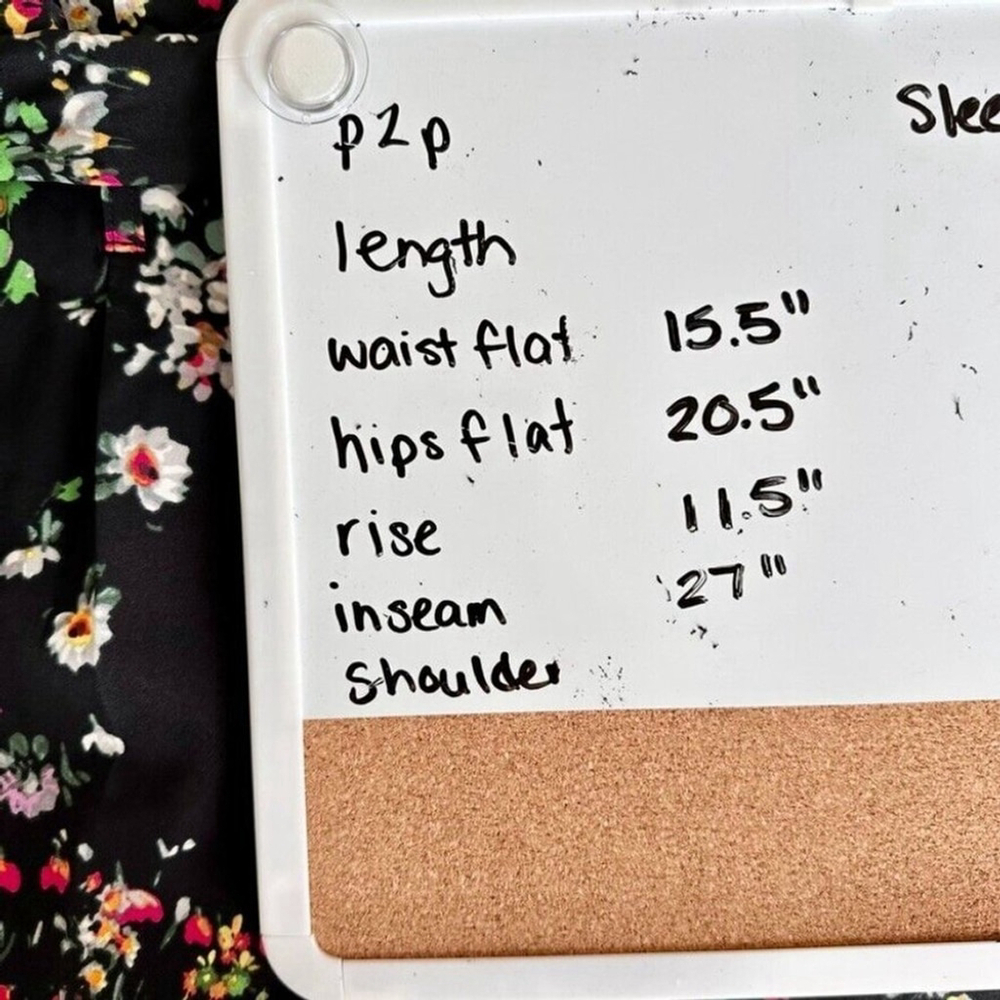 p2p
Slee
length
waist flat 15.5"
hips flat 20.5"
rise 11.5"
inseam 27"
Shoulder